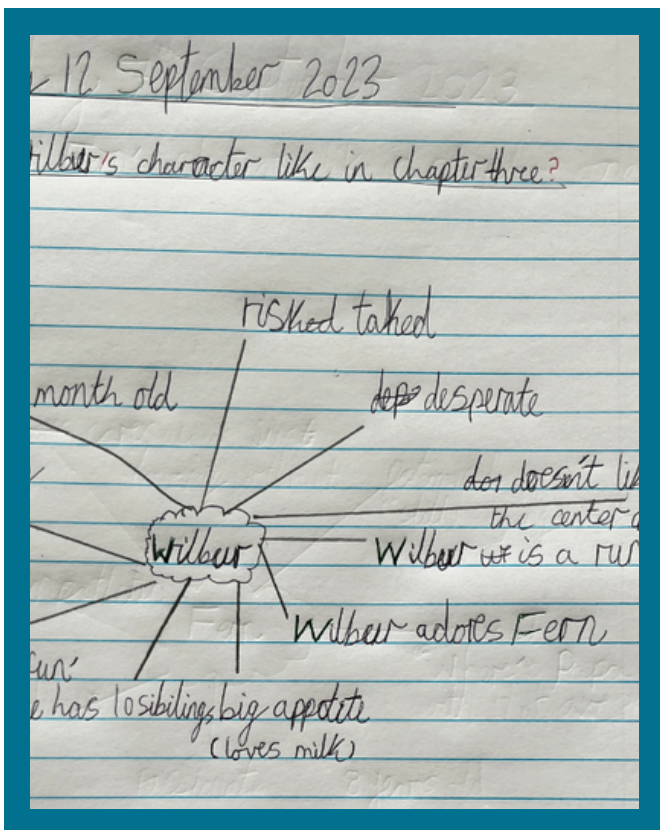 12 September 2023
ilbur's character like in chapter three?
risked taked
month old
desperate
doesn't li
the center
Wilbur is a run
Wilbur
Wilbur adores Fern
fun'
e has 10 sibilings
big appotite
(loves milk)